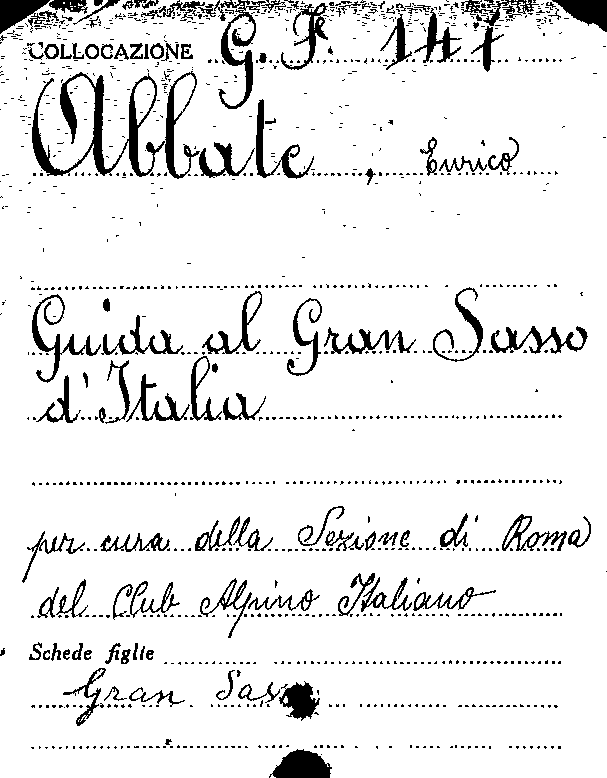 COLLOCAZIONE G. F. 147
Abbate, Enrico
Guida al Gran Sasso
d'Italia
per cura della Sezione di Roma
del Club Alpino Italiano
Schede figlie
Gran Sass